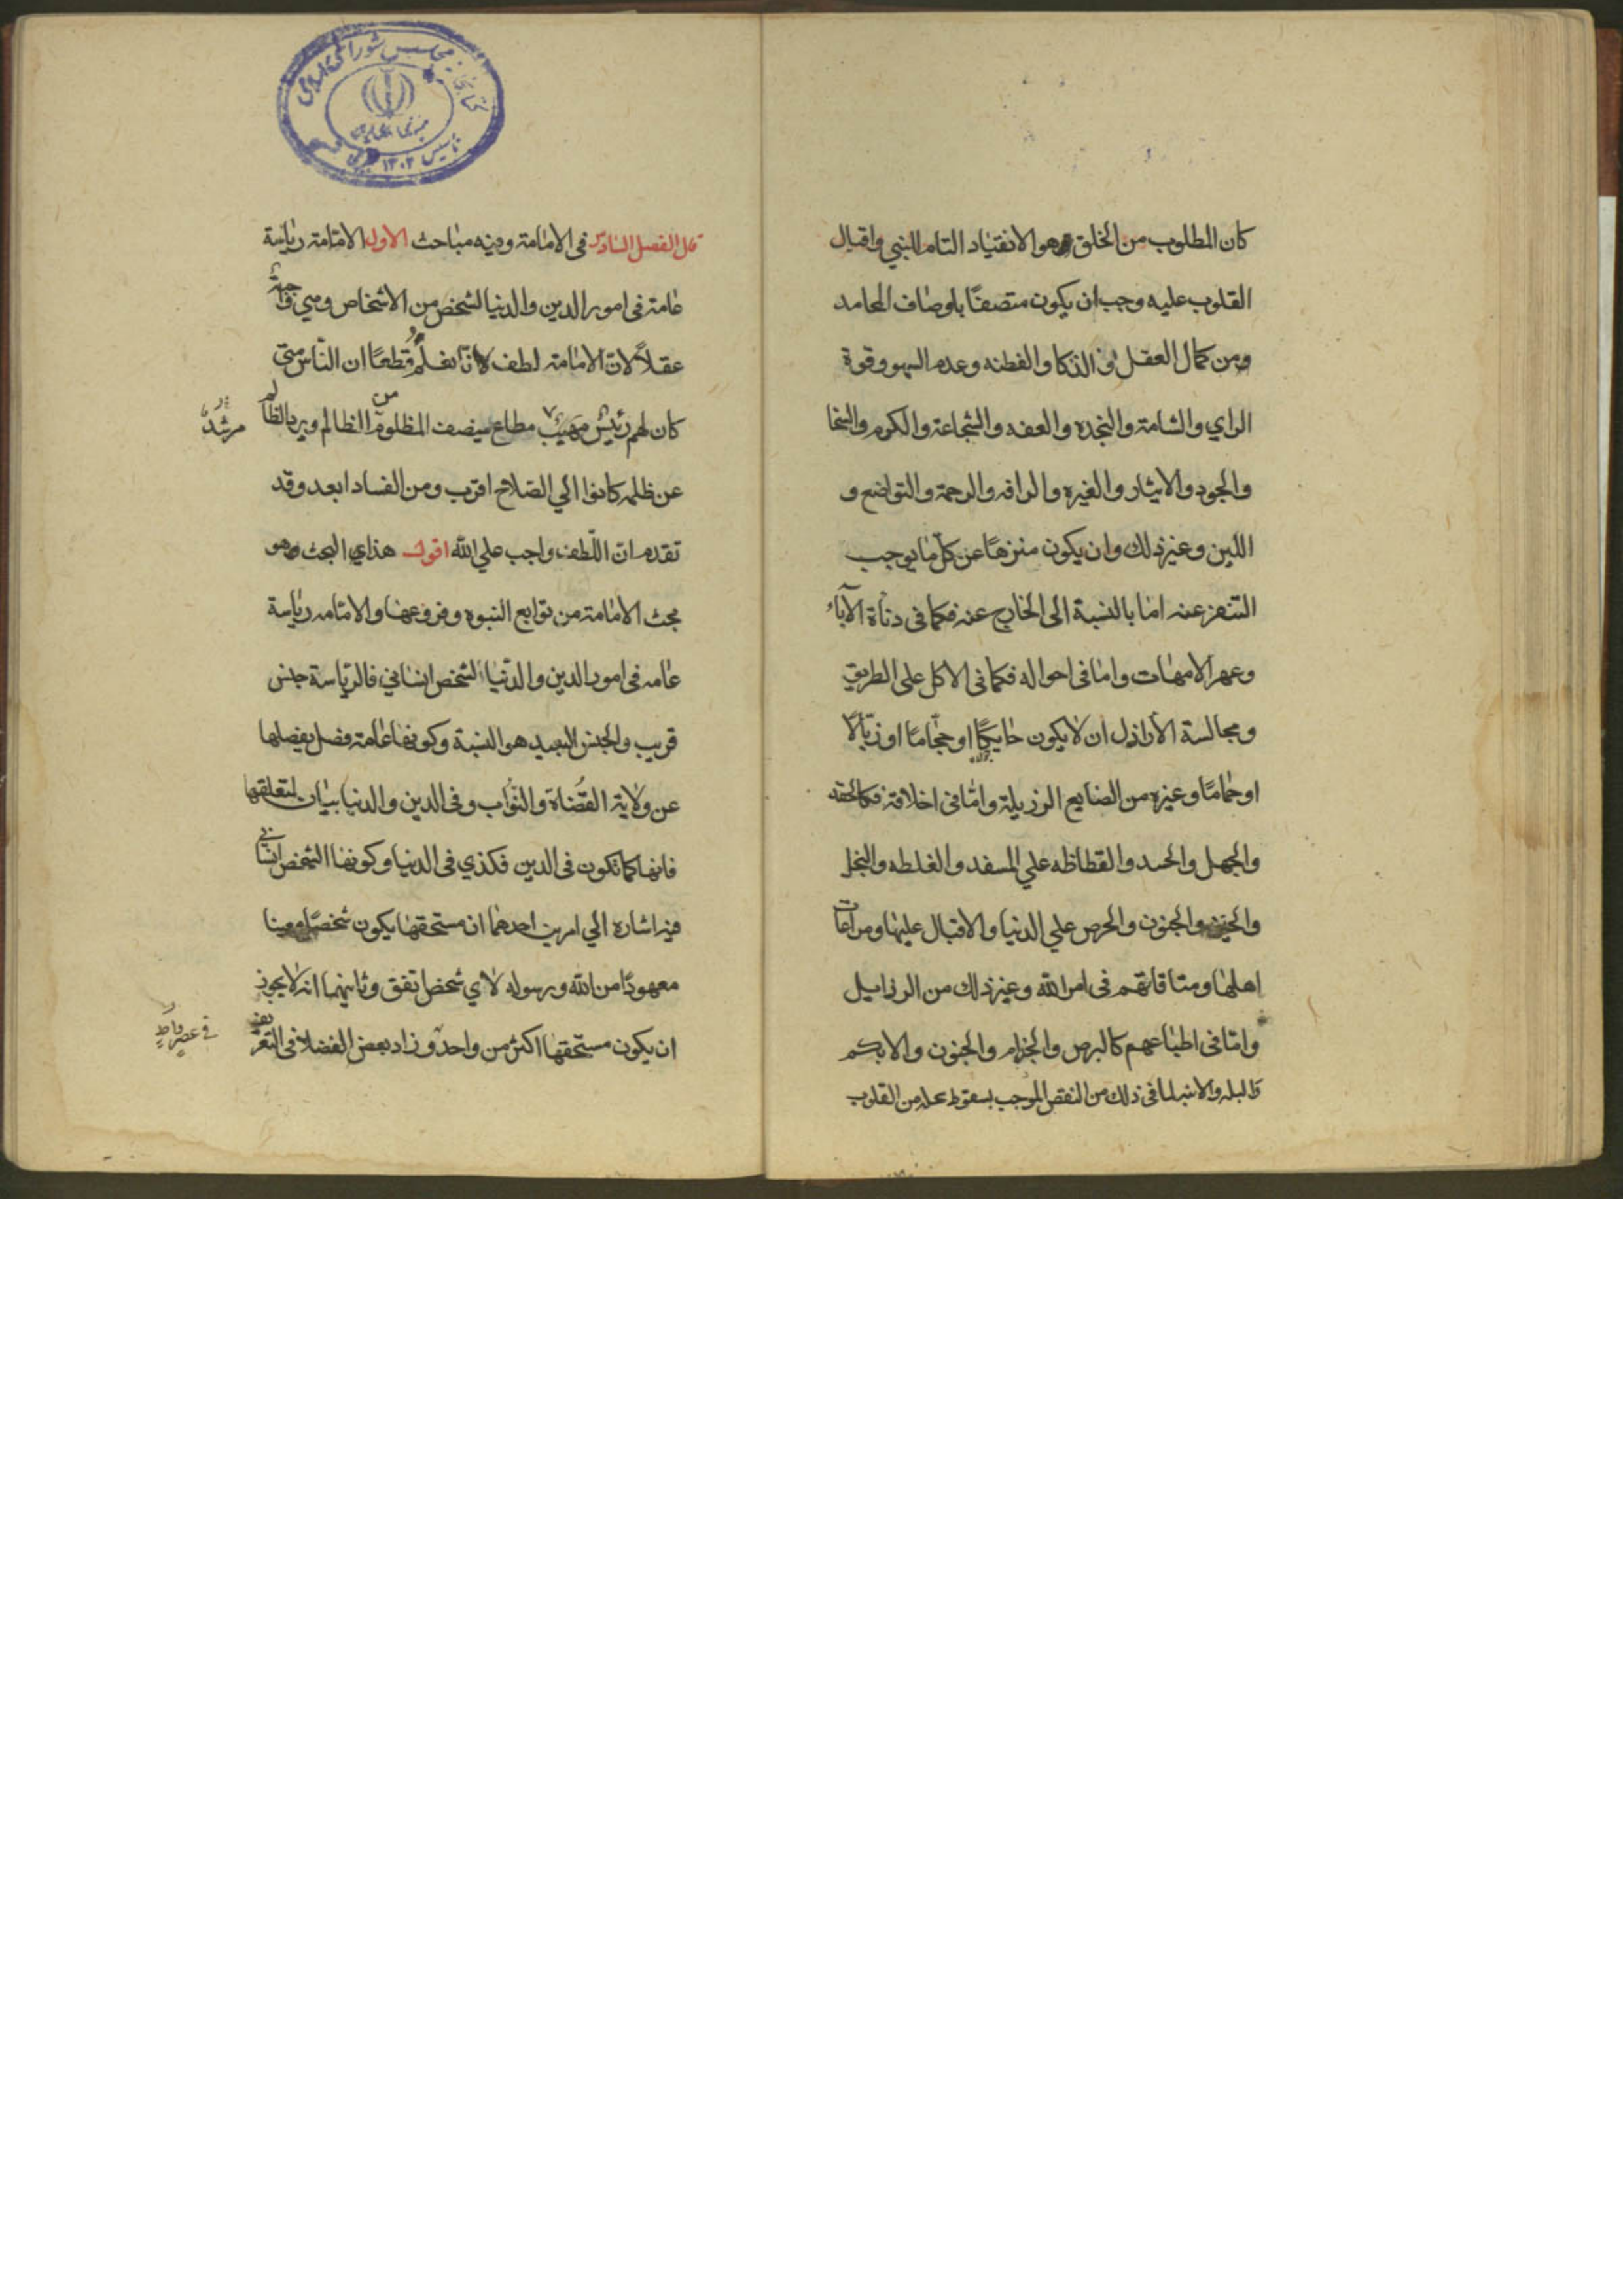 كان المطلوب من الخلق وهو الانقياد التام النبي واقبال
القلوب عليه وجب ان يكون متصفًا باوصاف المحامد
ومن كمال العقل والذكا والفطنه وعدم السهو وقوة
الراي والشامة والنجده والعفه والشجاعة والكرم والسخا
والجود والايثار والغيره والرافه والرحمة والتواضع و
اللين وغير ذلك وان يكون منزهًا عن كل ما يوجب
التنفر عنه اما بالنسبة الى الخارج عنه فكما فى دناة الآباء
وعهر الامهات واما فى احواله فكما فى الاكل على الطريق
ومجالسة الاراذل ان لا يكون حايكًا او حجامًا او زبالًا
او حمامًا وغيره من الصنايع الرزيلة واما فى اخلاقه فكالحقد
والجهل والحسد والقظاظه علي المسفد والغلطه والبخل
والجنون والحرص علي الدنيا والاقبال عليها ومراعات
اهلها ومتاقاتهم فى امر الله وغير ذلك من الرزايل
واما فى اطباعهم كالبرص والجزام والجنون والابكم
والبله والابنه لما فى ذلك من النقص الموجب بسقوط محله من القلوب
قال الفصل السادس فى الامامة وفيه مباحث الاول الامامة رياسة
عامة فى امور الدين والدنيا لشخص من الاشخاص وهي واجبة
عقلاً لان الامامة لطف لانا نعلم قطعًا ان الناس متى
كان لهم رئيس مهيب مطاع ينصف المظلوم من الظالم ويرد الظالم
مرشد
عن ظلمه كانوا الي الصلاح اقرب ومن الفساد ابعد وقد
تقدم ان اللطف واجب علي الله اقول هذاي البحث وهو
بحث الامامة من توابع النبوه وفروعها والامامه رياسة
عامه فى امور الدين والدنيا لشخص انساني فالرياسة جنس
قريب والجنس البعيد هو النسبة وكونها عامة فصل يفصلها
عن ولاية القضاة والنواب وفى الدين والدنيا بيان لمتعلقها
فانها كما تكون فى الدين فكذي فى الدنيا وكونها الشخص انساني
فيه اشارة الي امرين احدهما ان مستحقها يكون شخصًا معينا
معهودًا من الله ورسوله لا اي شخص اتفق وثانيهما انه لا يجوز
ان يكون مستحقها اكثر من واحد وزاد بعض الفضلا فى التعريف
فى عصر واحد